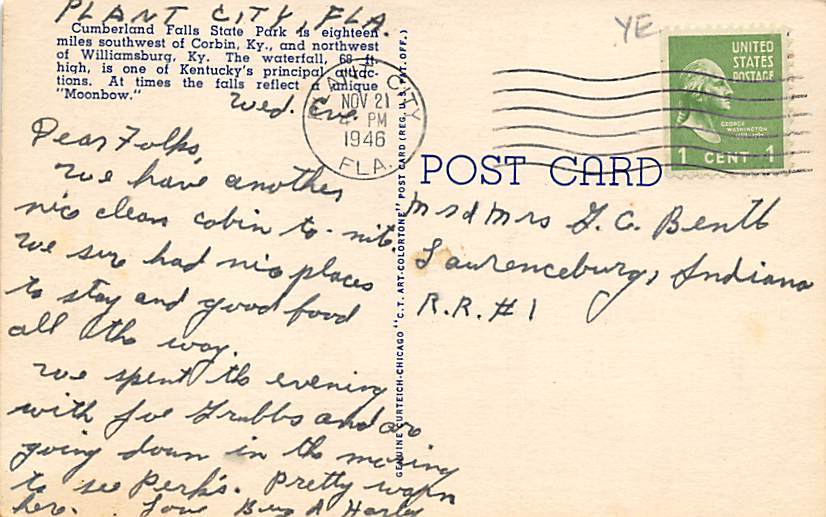 PLANT CITY, FLA.
Cumberland Falls State Park is eighteen
miles southwest of Corbin, Ky., and northwest
of Williamsburg, Ky. The waterfall, 68 ft.
high, is one of Kentucky's principal attrac-
tions. At times the falls reflect a unique
"Moonbow."
Wed. Eve.
Dear Folks,
We have another
nice clean cabin to-nite.
We sure had nice places
to stay and good food
all the way.
We spent the evening
with Joe Grubbs and are
going down in the morning
to see Perk's. Pretty warm
here. Love Harley
GENUINE CURTEICH-CHICAGO "C.T. ART-COLORTONE" POST CARD (REG. U.S. PAT. OFF.)
PLANT CITY
NOV 21
PM
1946
FLA.
YE
UNITED
STATES
POSTAGE
GEORGE
WASHINGTON
1 CENT 1
POST CARD
Mrs G. C.
Lawrenceburg, Indiana
R.R. #1